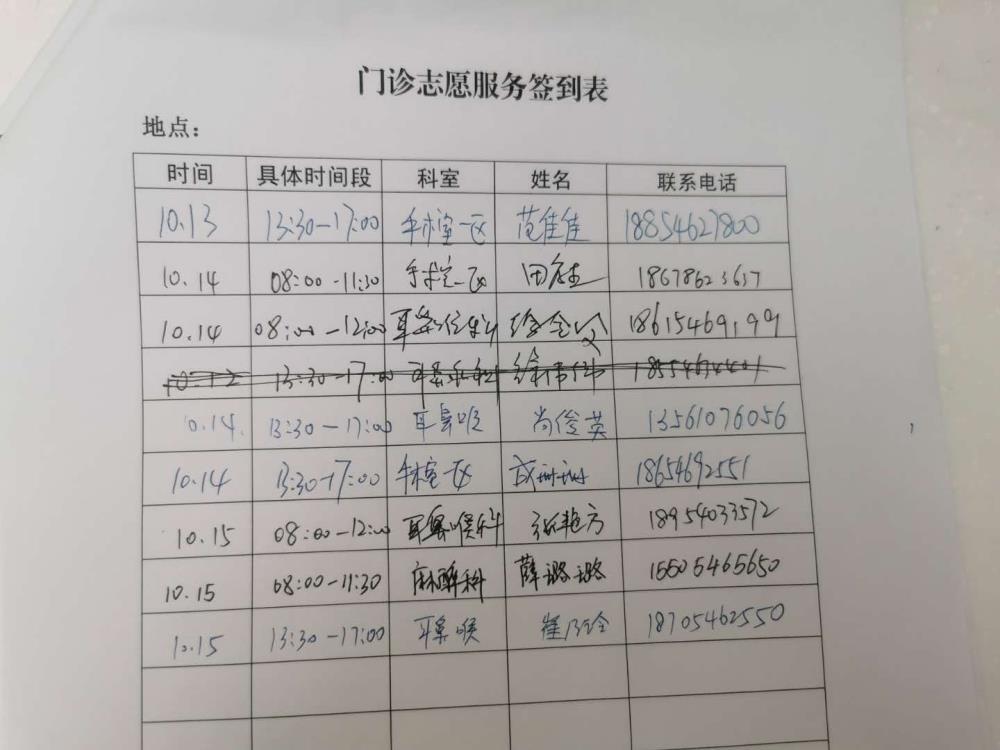 门诊志愿服务签到表
地点：
时间 具体时间段 科室 姓名 联系电话
10.13 13:30-17:00 手术室一区 范佳佳 18854627800
10.14 08:00-11:30 手术室一区 田 18678623637
10.14 08:00-12:00 耳鼻喉 徐 18615469199
10.12 13:30-17:00 耳鼻喉科 徐伟伟
10.14 13:30-17:00 耳鼻喉 尚俊英 13561076056
10.14 13:30-17:00 手术室一区 成珊珊 18654692551
10.15 08:00-12:00 耳鼻喉科 张艳方 18954033572
10.15 08:00-11:30 麻醉科 薛璐璐 15505465650
10.15 13:30-17:00 耳鼻喉 崔乃玲 18705462550